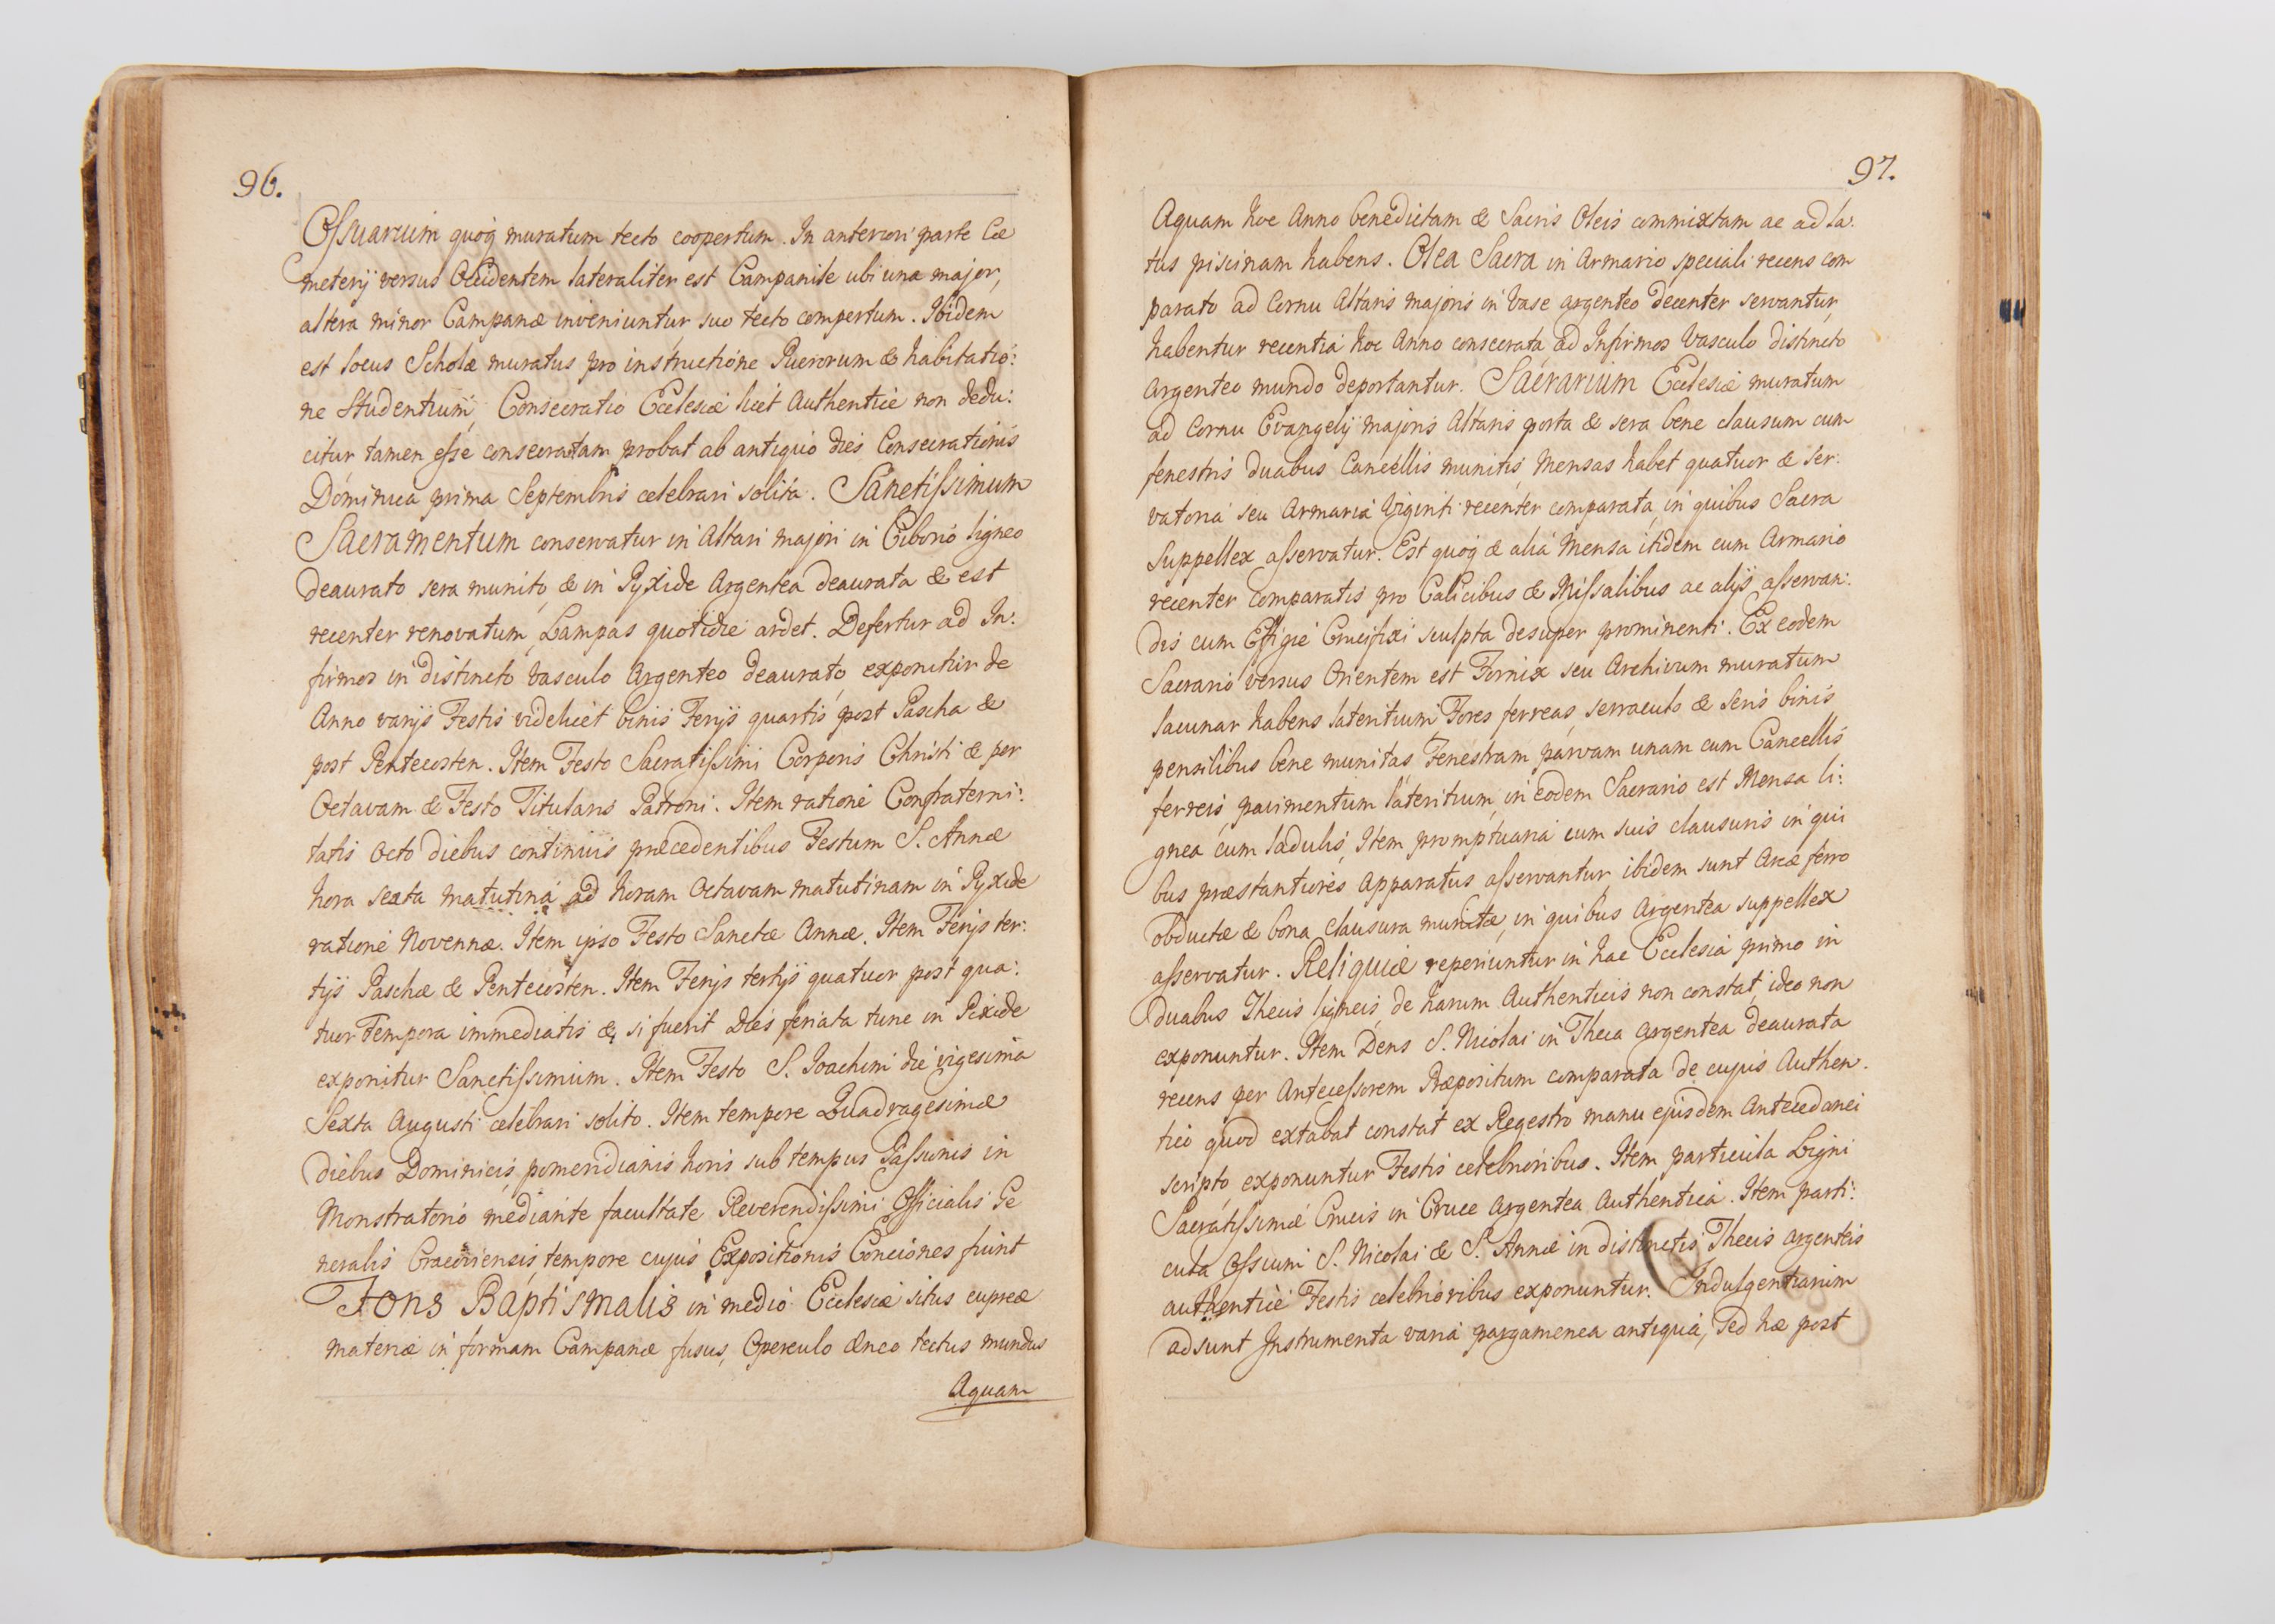 96.
Ossuarium quoq muratum tecto coopertum. In anteriori parte Cœ
meterij versus Occidentem lateraliter est Campanile ubi una major,
altera minor Campanæ inveniuntur suo tecto compertum. Ibidem
est locus Scholæ muratus pro instructione Puerorum & habitatio:
ne Studentium, Consecratio Ecclesiæ licet Authentice non dedu:
citur tamen esse consecratam probat ab antiquo dies Consecrationis
Dominica prima Septembris celebrari solita. Sanctissimum
Sacramentum conservatur in Altari majori in Ciborio ligneo
deaurato sera munito, & in Pyxide Argentea deaurata & est
recenter renovatum, Lampas quotidie ardet. Defertur ad In:
firmos in distincto Vasculo Argenteo deaurato, exponitur de
Anno varijs Festis videlicet binis Ferijs quartis post Pascha &
post Pentecosten. Item Festo Sacratissimi Corporis Christi & per
Octavam & Festo Titularis Patroni. Item ratione Confraterni:
tatis Octo diebus continuis præcedentibus Festum S. Annæ
hora sexta matutina ad horam Octavam matutinam in Pyxide
ratione Novennæ. Item ipso Festo Sanctæ Annæ. Item Ferijs ter:
tijs Paschæ & Pentecosten. Item Ferijs tertijs quatuor post qua:
tuor Tempora immediatis &, si fuerit Dies feriata tunc in Pixide
exponitur Sanctissimum. Item Festo S. Joachimi die vigesima
Sexta Augusti celebrari solito. Item tempore Quadragesimæ
diebus Dominicis, pomeridianis horis sub tempus Passionis in
Monstratorio mediante facultate Reverendissimi Officialis Ge
neralis Cracoviensis, tempore cujus Expositionis Conciones fiunt
Fons Baptismalis in medio Ecclesiæ situs cupreæ
materiæ in formam Campanæ fusus, Operculo æneo tectus mundus
Aquam
97.
Aquam hoc Anno benedictam & Sacris Oleis commixtam ac ad la:
tus piscinam habens. Olea Sacra in Armario speciali recens com
parato ad Cornu Altaris majoris in Vase argenteo decenter servantur,
habentur recentia hoc Anno consecrata, ad Infirmos Vasculo distincto
argenteo mundo deportantur. Sacrarium Ecclesiæ muratum
ad Cornu Evangelij majoris Altaris porta & sera bene clausum cum
fenestris duabus Cancellis munitis, Mensas habet quatuor & ser:
vatoria seu Armaria Viginti recenter comparata, in quibus Sacra
Suppellex asservatur. Est quoq & alia Mensa itidem cum Armario
recenter comparatis pro Calicibus & Missalibus ac alijs asservan:
dis cum Effigie Crucifixi sculpta desuper prominenti. Ex eodem
Sacrario versus Orientem est Fornix seu Archivum muratum
lacunar habens lateritium, Fores ferreas, serraculo & seris binis
pensilibus bene munitas, Fenestram parvam unam cum Cancellis
ferreis, pavimentum lateritium, in eodem Sacrario est Mensa li:
gnea cum ladulis, Item promptuaria cum suis clausuris in qui
bus præstantiores Apparatus asservantur, ibidem sunt Arcæ ferro
obductæ & bona clausura munitæ, in quibus Argentea suppellex
asservatur. Reliquiæ reperiuntur in hac Ecclesia primo in
duabus Thecis ligneis, de harum Authenticis non constat, ideo non
exponuntur. Item Dens S. Nicolai in Theca argentea deaurata
recens per Antecessorem Præpositum comparata de cujus Authen:
tico quod extabat constat ex Regestro manu ejusdem Antecedanei
scripto, exponuntur Festis celebrioribus. Item particula Ligni
Sacratissimæ Crucis in Cruce Argentea Authentica. Item parti:
cula Ossium S. Nicolai & S. Annæ in distinctis Thecis argenteis
authenticæ Festis celebrioribus exponuntur. Indulgentiarum
adsunt Instrumenta varia pargamenea antiqua, sed hæ post